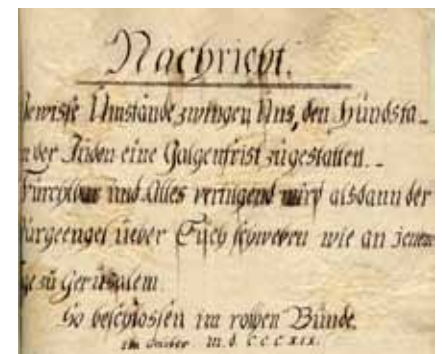 Nachricht.
ewisse Umstände zwingen Uns, den Hundsta-
n der Juden eine Galgenfrist zu gestatten. -
Furchtbar und Alles vertilgend wird alsdann der
ürgeengel ueber Euch schweben wie an jenem
ge zu Jerusalem
So beschlossen im rothen Bunde.
im October. m. d. CCCXIX.